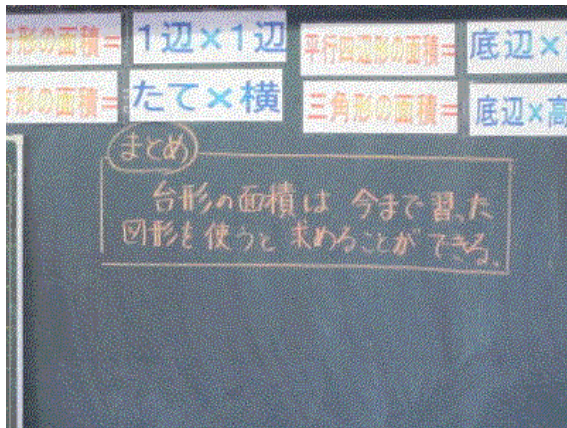 方形の面積= 1辺×1辺 平行四辺形の面積= 底辺×
方形の面積= たて×横 三角形の面積= 底辺×高
まとめ
台形の面積は 今まで習った
図形を使うと 求めることができる。